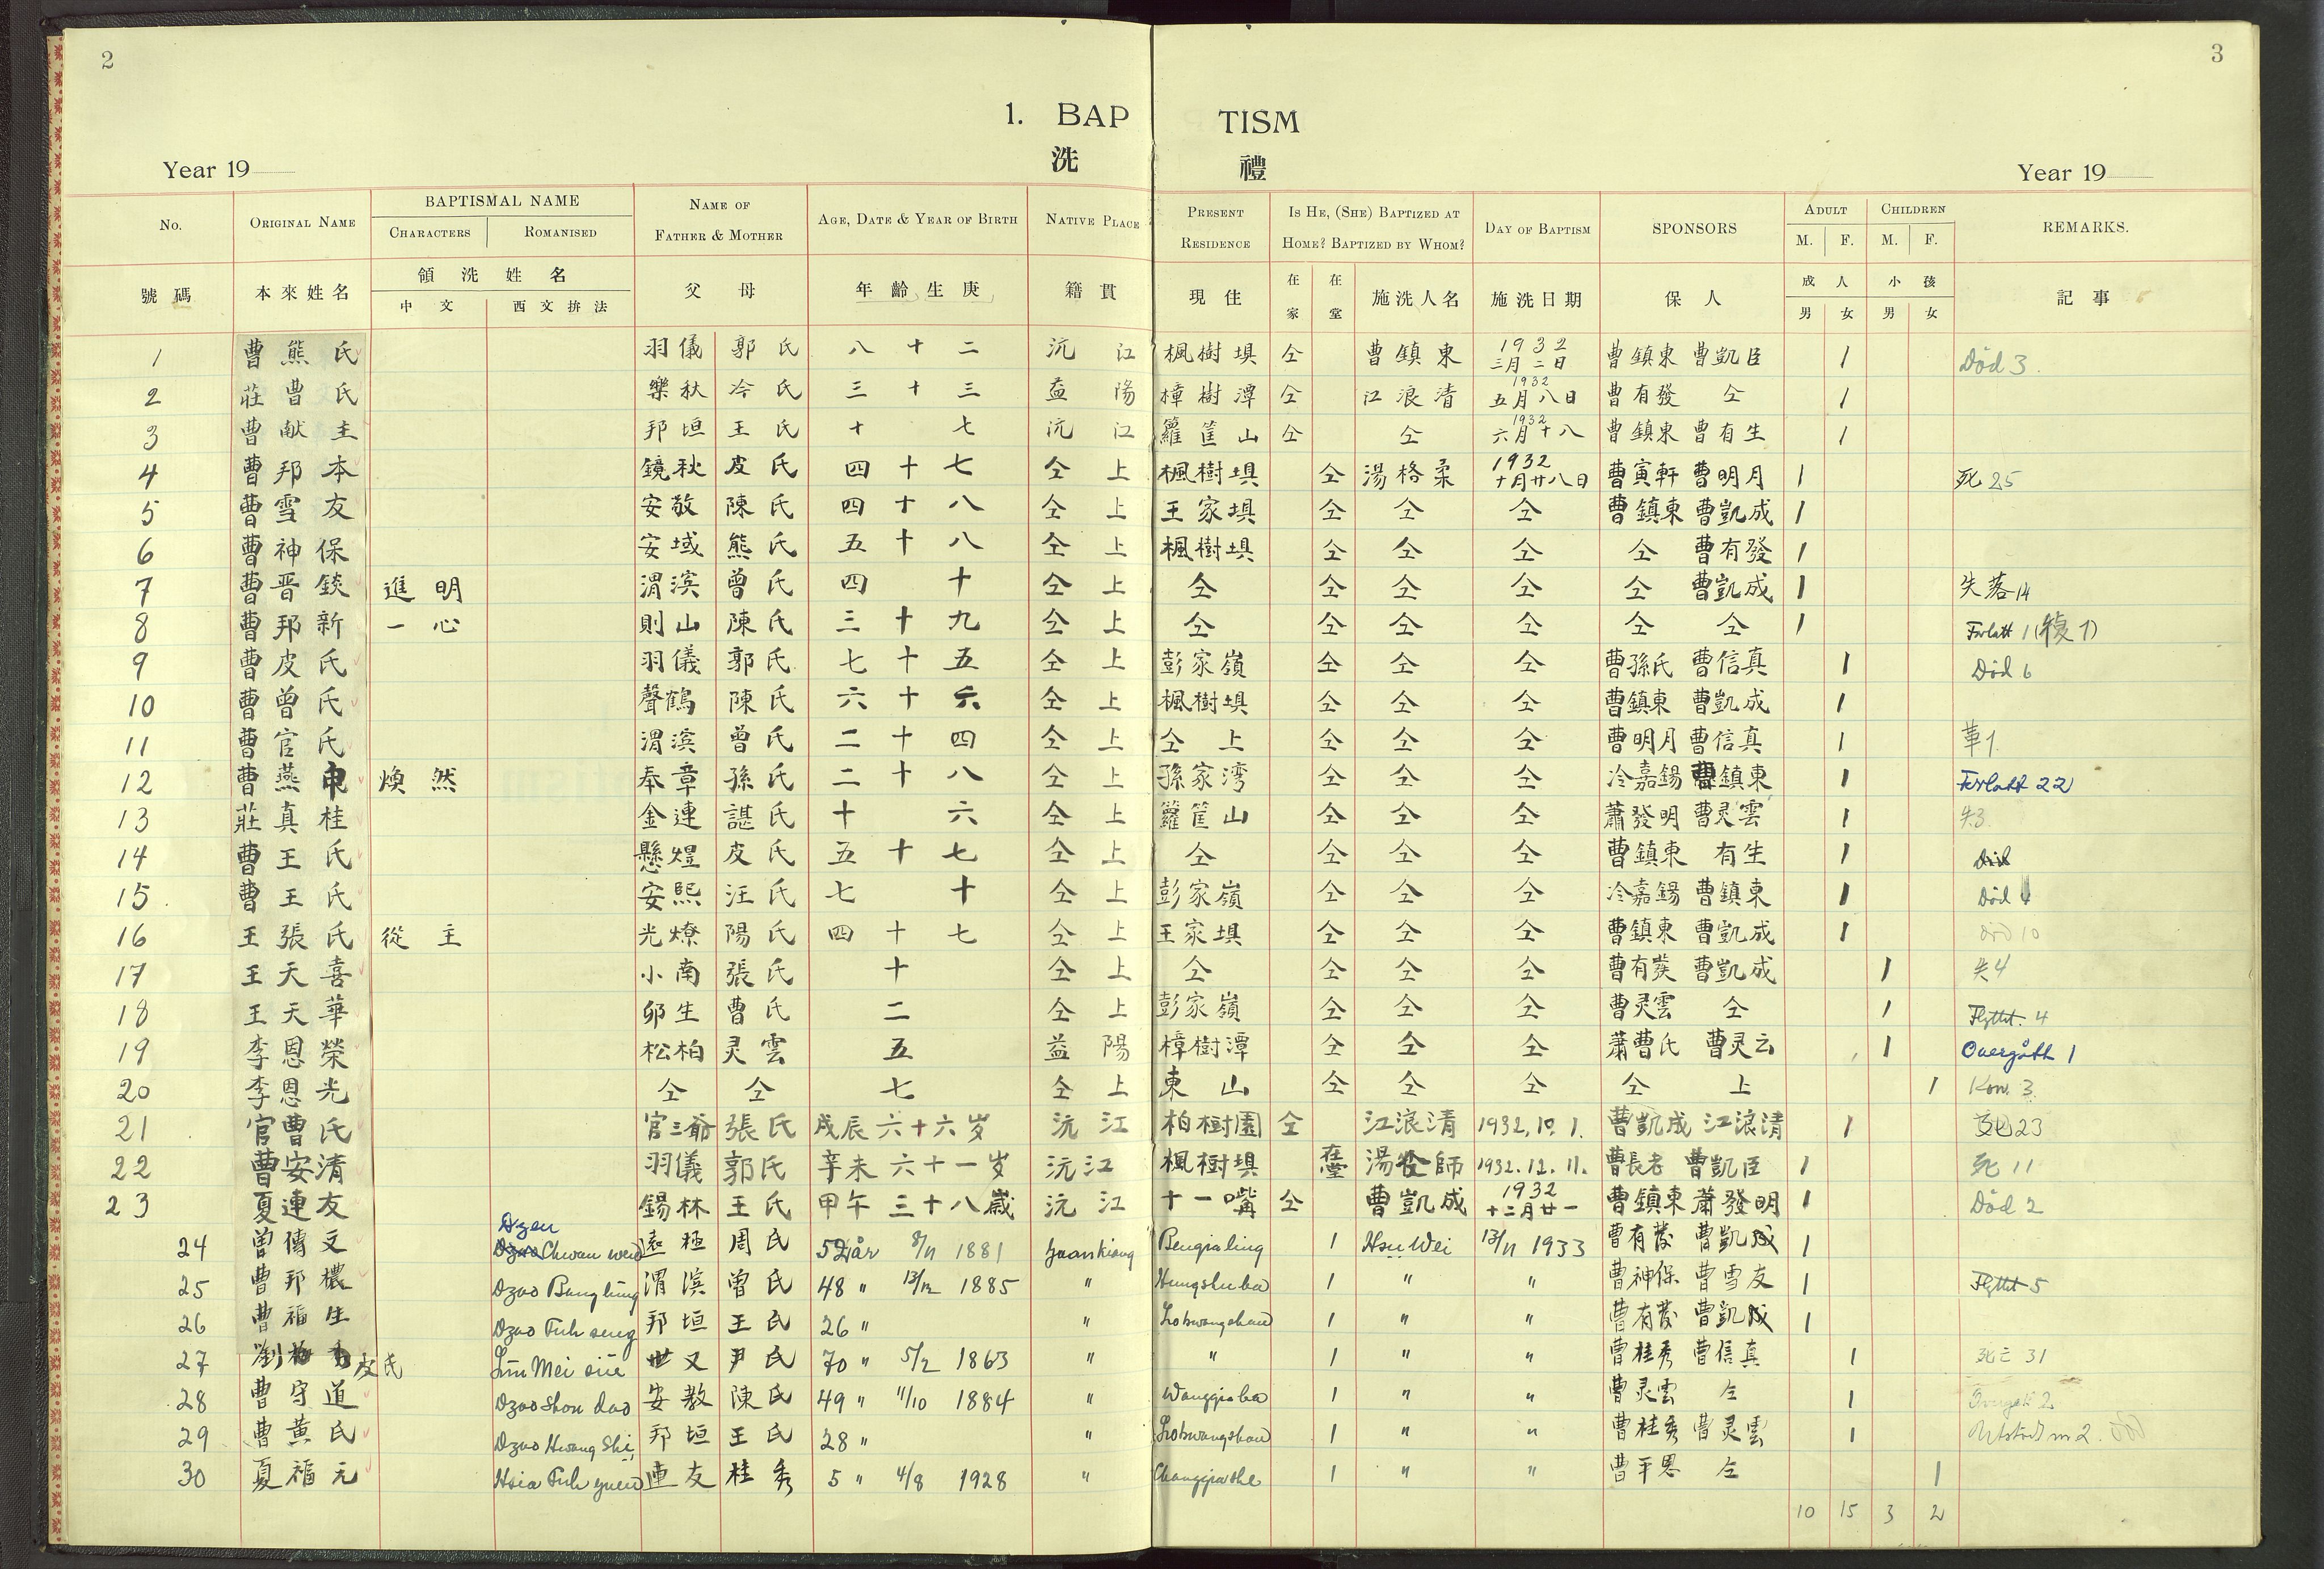 2
3
1. BAP TISM
洗 禮
Year 19
Year 19
No. ORIGINAL NAME BAPTISMAL NAME NAME OF AGE, DATE & YEAR OF BIRTH NATIVE PLACE PRESENT IS HE, (SHE) BAPTIZED AT DAY OF BAPTISM SPONSORS ADULT CHILDREN REMARKS.
CHARACTERS ROMANISED FATHER & MOTHER RESIDENCE HOME? BAPTIZED BY WHOM? M. F. M. F.
號碼 本來姓名 領洗姓名 父母 年齡生庚 籍貫 現住 在家 在堂 施洗人名 施洗日期 保人 成人 小孩 記事
中文 西文拚法 男 女 男 女
1 曹熊氏 羽儀 郭氏 八十二 沅江 楓樹垻 仝 曹鎮東 1932 三月二日 曹鎮東 曹凱臣 1 Död 3
2 莊曹氏 樂秋 冷氏 三十三 益陽 樟樹潭 仝 江浪清 1932 五月八日 曹有發 仝 1
3 曹献主 邦垣 王氏 十七 沅江 籮筐山 仝 仝 1932 六月十八 曹鎮東 曹有生 1
4 曹邦本 鏡秋 皮氏 四十七 仝上 楓樹垻 仝 湯格柔 1932 十月廿八日 曹寅軒 曹明月 1 死 25
5 曹雪友 安敬 陳氏 四十八 仝上 王家垻 仝 仝 仝 曹鎮東 曹凱成 1
6 曹神保 安域 熊氏 五十八 仝上 楓樹垻 仝 仝 仝 仝 曹有發 1
7 曹晋錟 進明 渭滨 曾氏 四十 仝上 仝 仝 仝 仝 仝 曹凱成 1 失落 14
8 曹邦新 一心 則山 陳氏 三十九 仝上 仝 仝 仝 仝 仝 仝 1 Forlatt 1 (復 7)
9 曹皮氏 羽儀 郭氏 七十五 仝上 彭家嶺 仝 仝 仝 曹孫氏 曹信真 1 Död 6
10 曹曾氏 聲鶴 陳氏 六十六 仝上 楓樹垻 仝 仝 仝 曹鎮東 曹凱成 1
11 曹官氏 渭滨 曾氏 二十四 仝上 仝上 仝 仝 仝 曹明月 曹信真 1 革 1
12 曹燕 煥然 奉章 孫氏 二十八 仝上 孫家湾 仝 仝 仝 冷嘉錫 曹鎮東 1 Forlatt 22
13 莊真桂 金連 諶氏 十六 仝上 籮筐山 仝 仝 仝 蕭發明 曹灵雲 1 失3
14 曹王氏 懸煜 皮氏 五十七 仝上 仝 仝 仝 仝 曹鎮東 有生 1 Död
15 曹王氏 安熙 汪氏 七十 仝上 彭家嶺 仝 仝 仝 冷嘉錫 曹鎮東 1 Död 4
16 王張氏 從主 光燎 陽氏 四十七 仝上 王家垻 仝 仝 仝 曹鎮東 曹凱成 1 Död 10
17 王天喜 小南 張氏 十 仝上 仝 仝 仝 仝 曹有發 曹凱成 1 失4
18 王天華 卯生 曹氏 二 仝上 彭家嶺 仝 仝 仝 曹灵雲 仝 1 Flyttat. 4
19 李恩榮 松柏 灵雲 五 益陽 樟樹潭 仝 仝 仝 蕭曹氏 曹灵云 1 Övergått 1
20 李恩光 仝 仝 七 仝上 東山 仝 仝 仝 仝上 1 Kon. 3
21 官曹氏 官三爺 張氏 戊辰 六十六岁 沅江 柏樹園 仝 江浪清 1932, 10. 1. 曹凱成 江浪清 1 23
22 曹安清 羽儀 郭氏 辛未 六十一岁 沅江 楓樹垻 在堂 湯牧師 1932. 12. 11. 曹長老 曹凱臣 1 死 11
23 夏連友 錫林 王氏 甲午 三十八歲 沅江 十一嘴 仝 曹凱成 1932 十二月廿一 曹鎮東 蕭發明 1 Död 2
24 曾傳文 Dzen Chwan wen 遠極 周氏 52 år 8/11 1881 Yuankiang Pengjialing 1 Hsu Wei 13/11 1933 曹有發 曹凱成 1
25 曹邦檂 Dzao Bang ling 渭滨 曾氏 48 " 13/12 1885 " Hungshuba 1 " " 曹神保 曹雪友 1 Flyttat 5
26 曹福生 Dzao Fuh seng 邦垣 王氏 26 " " Lokwangshan 1 " " 曹有發 曹凱成 1
27 劉梅 皮氏 Liu Mei siu 世又 尹氏 70 " 5/2 1863 " " 1 " " 曹桂秀 曹信真 1 死亡 31
28 曹守道 Dzao Shou dao 安教 陳氏 49 " 11/10 1884 " Wangjiaba 1 " " 曹灵雲 仝 1 Övergått 2
29 曹黃氏 Dzao Hwang Shi 邦垣 王氏 28 " " Lokwangshan 1 " " 曹桂秀 曹灵雲 1
30 夏福元 Hsia Fuh yuen 連友 桂秀 5 " 4/8 1928 " Changjiashe 1 " " 曹平恩 仝 1
10 15 3 2